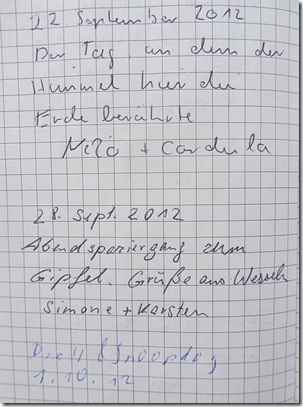 22 September 2012
Der Tag, an dem der
Himmel hier die
Erde berührte
+ Cordula
28. Sept. 2012
Abendspaziergang zum
Gipfel. Grüße aus
Simone + Karsten
& Snoopdog
1.10.12